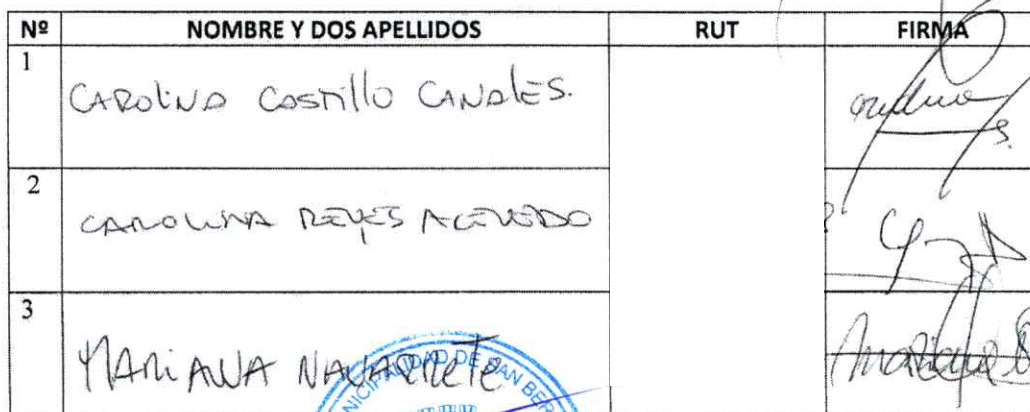 Nº NOMBRE Y DOS APELLIDOS RUT FIRMA
1 CAROLINA CASTILLO CANALES.
2 CAROLINA REYES ACEVEDO
3 MARIANA NAVARRETE
NICIPALIDAD DE SAN BER